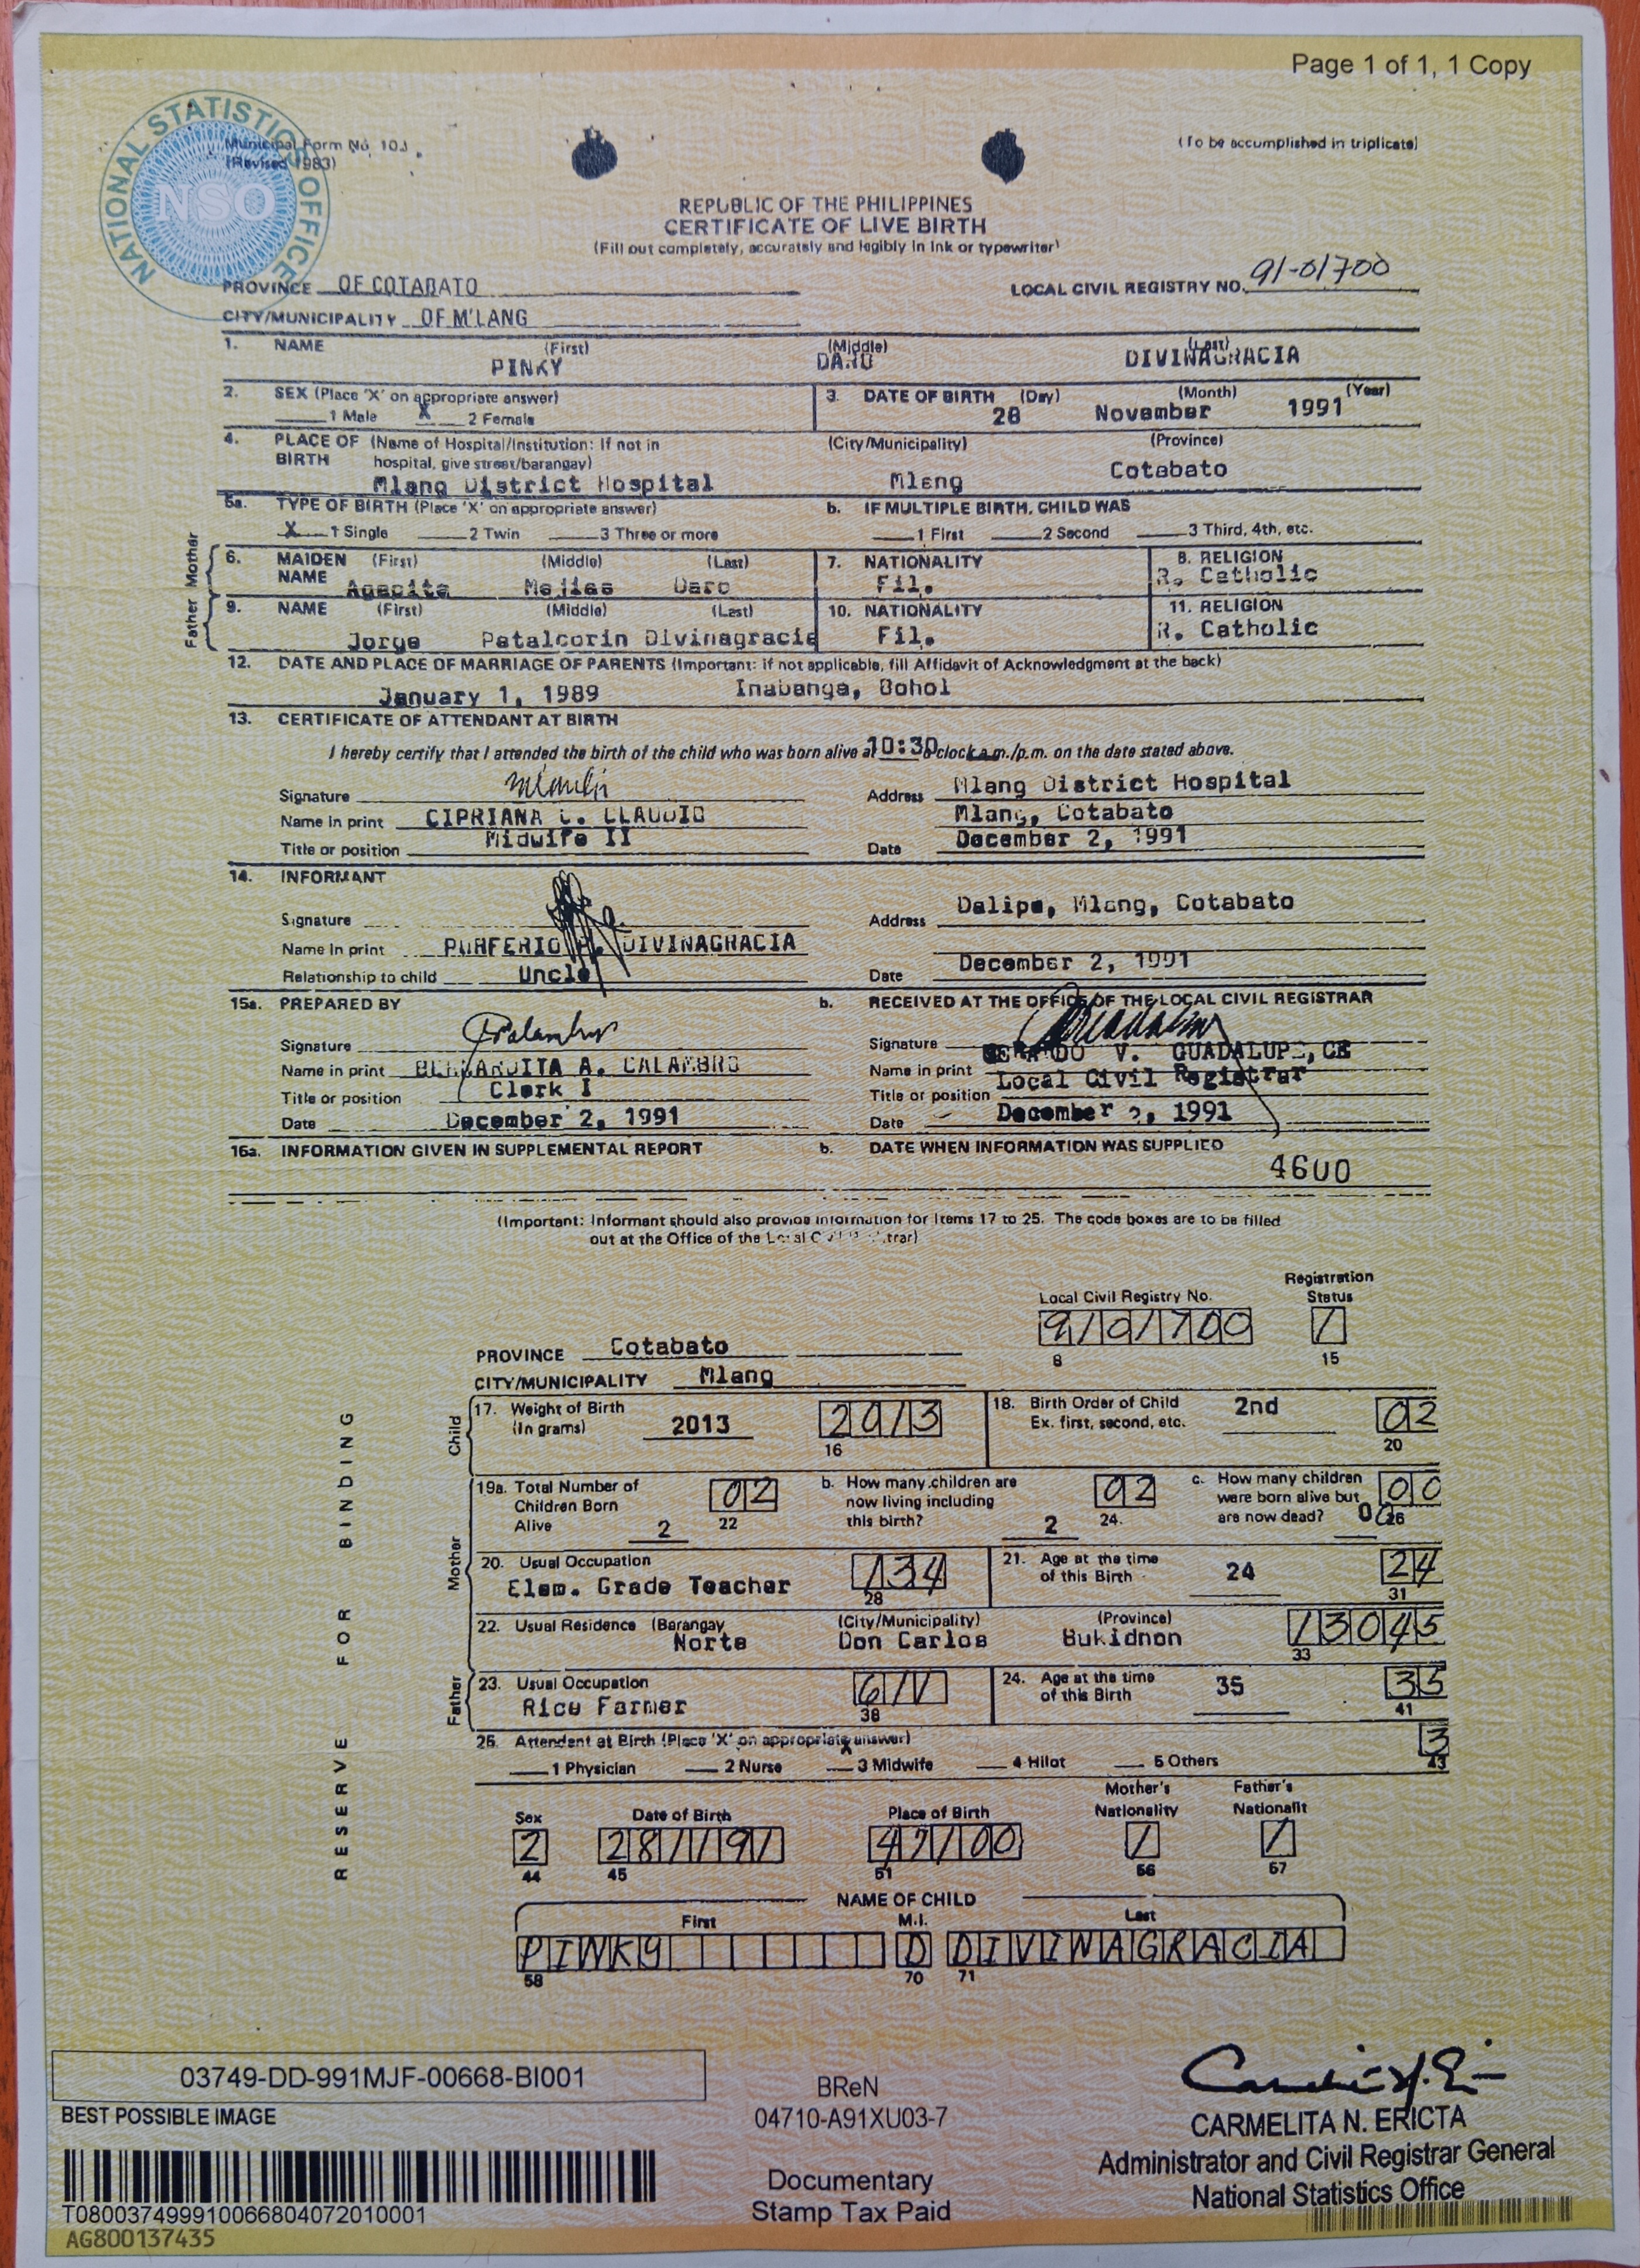 Page 1 of 1, 1 Copy
NATIONAL STATISTICS OFFICE
NSO
Municipal Form No. 10
(Revised 1983)
(To be accomplished in triplicate)
REPUBLIC OF THE PHILIPPINES
CERTIFICATE OF LIVE BIRTH
(Fill out completely, accurately and legibly in ink or typewriter)
PROVINCE OF COTABATO LOCAL CIVIL REGISTRY NO. 91-01700
CITY/MUNICIPALITY OF M'LANG
1. NAME (First) (Middle) (Last)
PINKY DIVINAGRACIA
2. SEX (Place 'X' on appropriate answer) 3. DATE OF BIRTH (Day) (Month) (Year)
1 Male X 2 Female 28 November 1991
4. PLACE OF (Name of Hospital/Institution: If not in (City/Municipality) (Province)
BIRTH hospital, give street/barangay)
Mlang District Hospital Mlang Cotabato
5a. TYPE OF BIRTH (Place 'X' on appropriate answer) b. IF MULTIPLE BIRTH, CHILD WAS
X 1 Single 2 Twin 3 Three or more 1 First 2 Second 3 Third, 4th, etc.
Mother
6. MAIDEN (First) (Middle) (Last) 7. NATIONALITY 8. RELIGION
NAME Agapita Mejias Daro Fil. R. Catholic
Father
9. NAME (First) (Middle) (Last) 10. NATIONALITY 11. RELIGION
Jorge Petalcorin Divinagracia Fil. R. Catholic
12. DATE AND PLACE OF MARRIAGE OF PARENTS (Important: if not applicable, fill Affidavit of Acknowledgment at the back)
January 1, 1989 Inabanga, Bohol
13. CERTIFICATE OF ATTENDANT AT BIRTH
I hereby certify that I attended the birth of the child who was born alive at 10:30 o'clock a.m./p.m. on the date stated above.
Signature Address Mlang District Hospital
Name in print CIPRIANA C. CLAUDIO Mlang, Cotabato
Title or position Midwife II Date December 2, 1991
14. INFORMANT
Signature Address Dalipe, Mlang, Cotabato
Name in print PORFERIO P. DIVINAGRACIA
Relationship to child Uncle Date December 2, 1991
15a. PREPARED BY b. RECEIVED AT THE OFFICE OF THE LOCAL CIVIL REGISTRAR
Signature Signature
Name in print BERNARDITA A. CALAMBRO Name in print V. GUADALUPE, CE
Title or position Clerk I Title or position Local Civil Registrar
Date December 2, 1991 Date December 2, 1991
16a. INFORMATION GIVEN IN SUPPLEMENTAL REPORT b. DATE WHEN INFORMATION WAS SUPPLIED
4600
(Important: Informant should also provide information for Items 17 to 25. The code boxes are to be filled
out at the Office of the Local Civil Registrar)
Local Civil Registry No. Registration Status
9101700 1
8 15
PROVINCE Cotabato
CITY/MUNICIPALITY Mlang
Child
17. Weight of Birth 18. Birth Order of Child 2nd 02
(In grams) 2013 2013 Ex. first, second, etc.
16 20
Mother
19a. Total Number of 02 b. How many children are 02 c. How many children 00
Children Born now living including were born alive but
Alive 2 22 this birth? 2 24. are now dead? 0 26
20. Usual Occupation 134 21. Age at the time 24 24
Elem. Grade Teacher 28 of this Birth 31
22. Usual Residence (Barangay (City/Municipality) (Province) 13045
Norte Don Carlos Bukidnon 33
Father
23. Usual Occupation 24. Age at the time 35 35
Rice Farmer 38 of this Birth 41
25. Attendant at Birth (Place 'X' on appropriate answer) 3
1 Physician 2 Nurse X 3 Midwife 4 Hilot 5 Others 43
Sex Date of Birth Place of Birth Mother's Nationality Father's Nationalit
2 281191 47100 1 1
44 45 51 56 57
NAME OF CHILD
First M.I. Last
PINKY D DIVINAGRACIA
58 70 71
RESERVE FOR BINDING
03749-DD-991MJF-00668-BI001
BEST POSSIBLE IMAGE
T080037499910066804072010001
AG800137435
BReN
04710-A91XU03-7
Documentary
Stamp Tax Paid
CARMELITA N. ERICTA
Administrator and Civil Registrar General
National Statistics Office